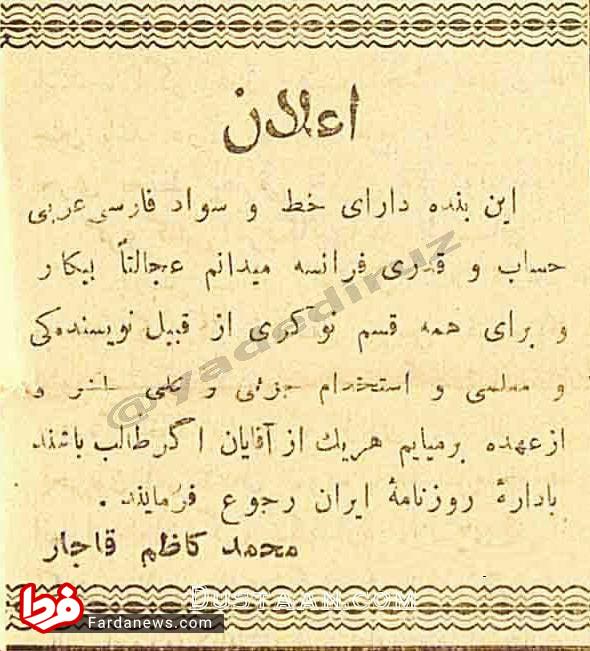 اعلان
این بنده دارای خط و سواد فارسی عربی
حساب و قدری فرانسه میدانم عجالتاً بیکار
و برای همه قسم نوکری از قبیل نویسنده‌کی
و معلمی و استخدام جزئی و کلی حاضر و
از عهده برمیایم هریك از آقایان اگر طالب باشند
بادارهٔ روزنامهٔ ایران رجوع فرمایند .
محمد کاظم قاجار
@yadediruz
DUSTAAN.COM
فردا
Fardanews.com